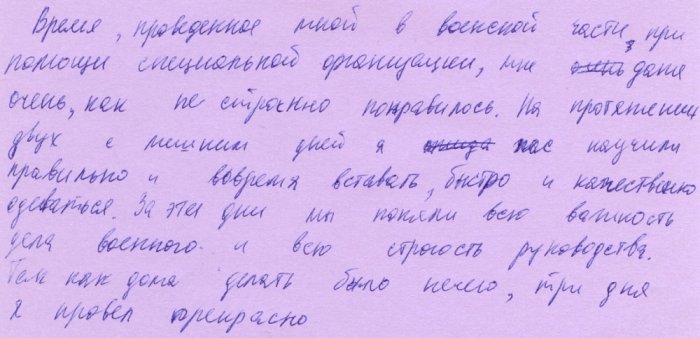 Время, проведенное мной в воинской части, при
помощи специальной организации, мне даже
очень, как не странно понравилось. На протяжении
двух с лишним дней я нас научили
правильно и вовремя вставать, быстро и качественно
одеваться. За эти дни мы поняли всю важность
дела военного и всю строгость руководства.
Так как дома делать было нечего, три дня
я провел прекрасно